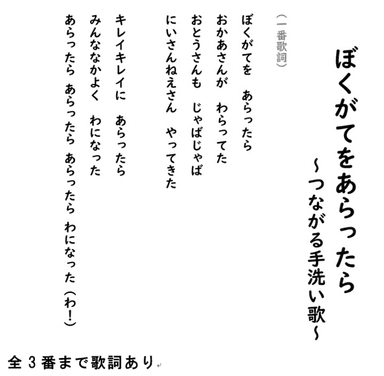 ぼくがてをあらったら
～つながる手洗い歌～
（一番歌詞）
ぼくがてを　あらったら
おかあさんが　わらってた
おとうさんも　じゃばじゃば
にいさんねえさん　やってきた
キレイキレイに　あらったら
みんななかよく　わになった
あらったら　あらったら　あらったら　わになった（わ！）
全３番まで歌詞あり